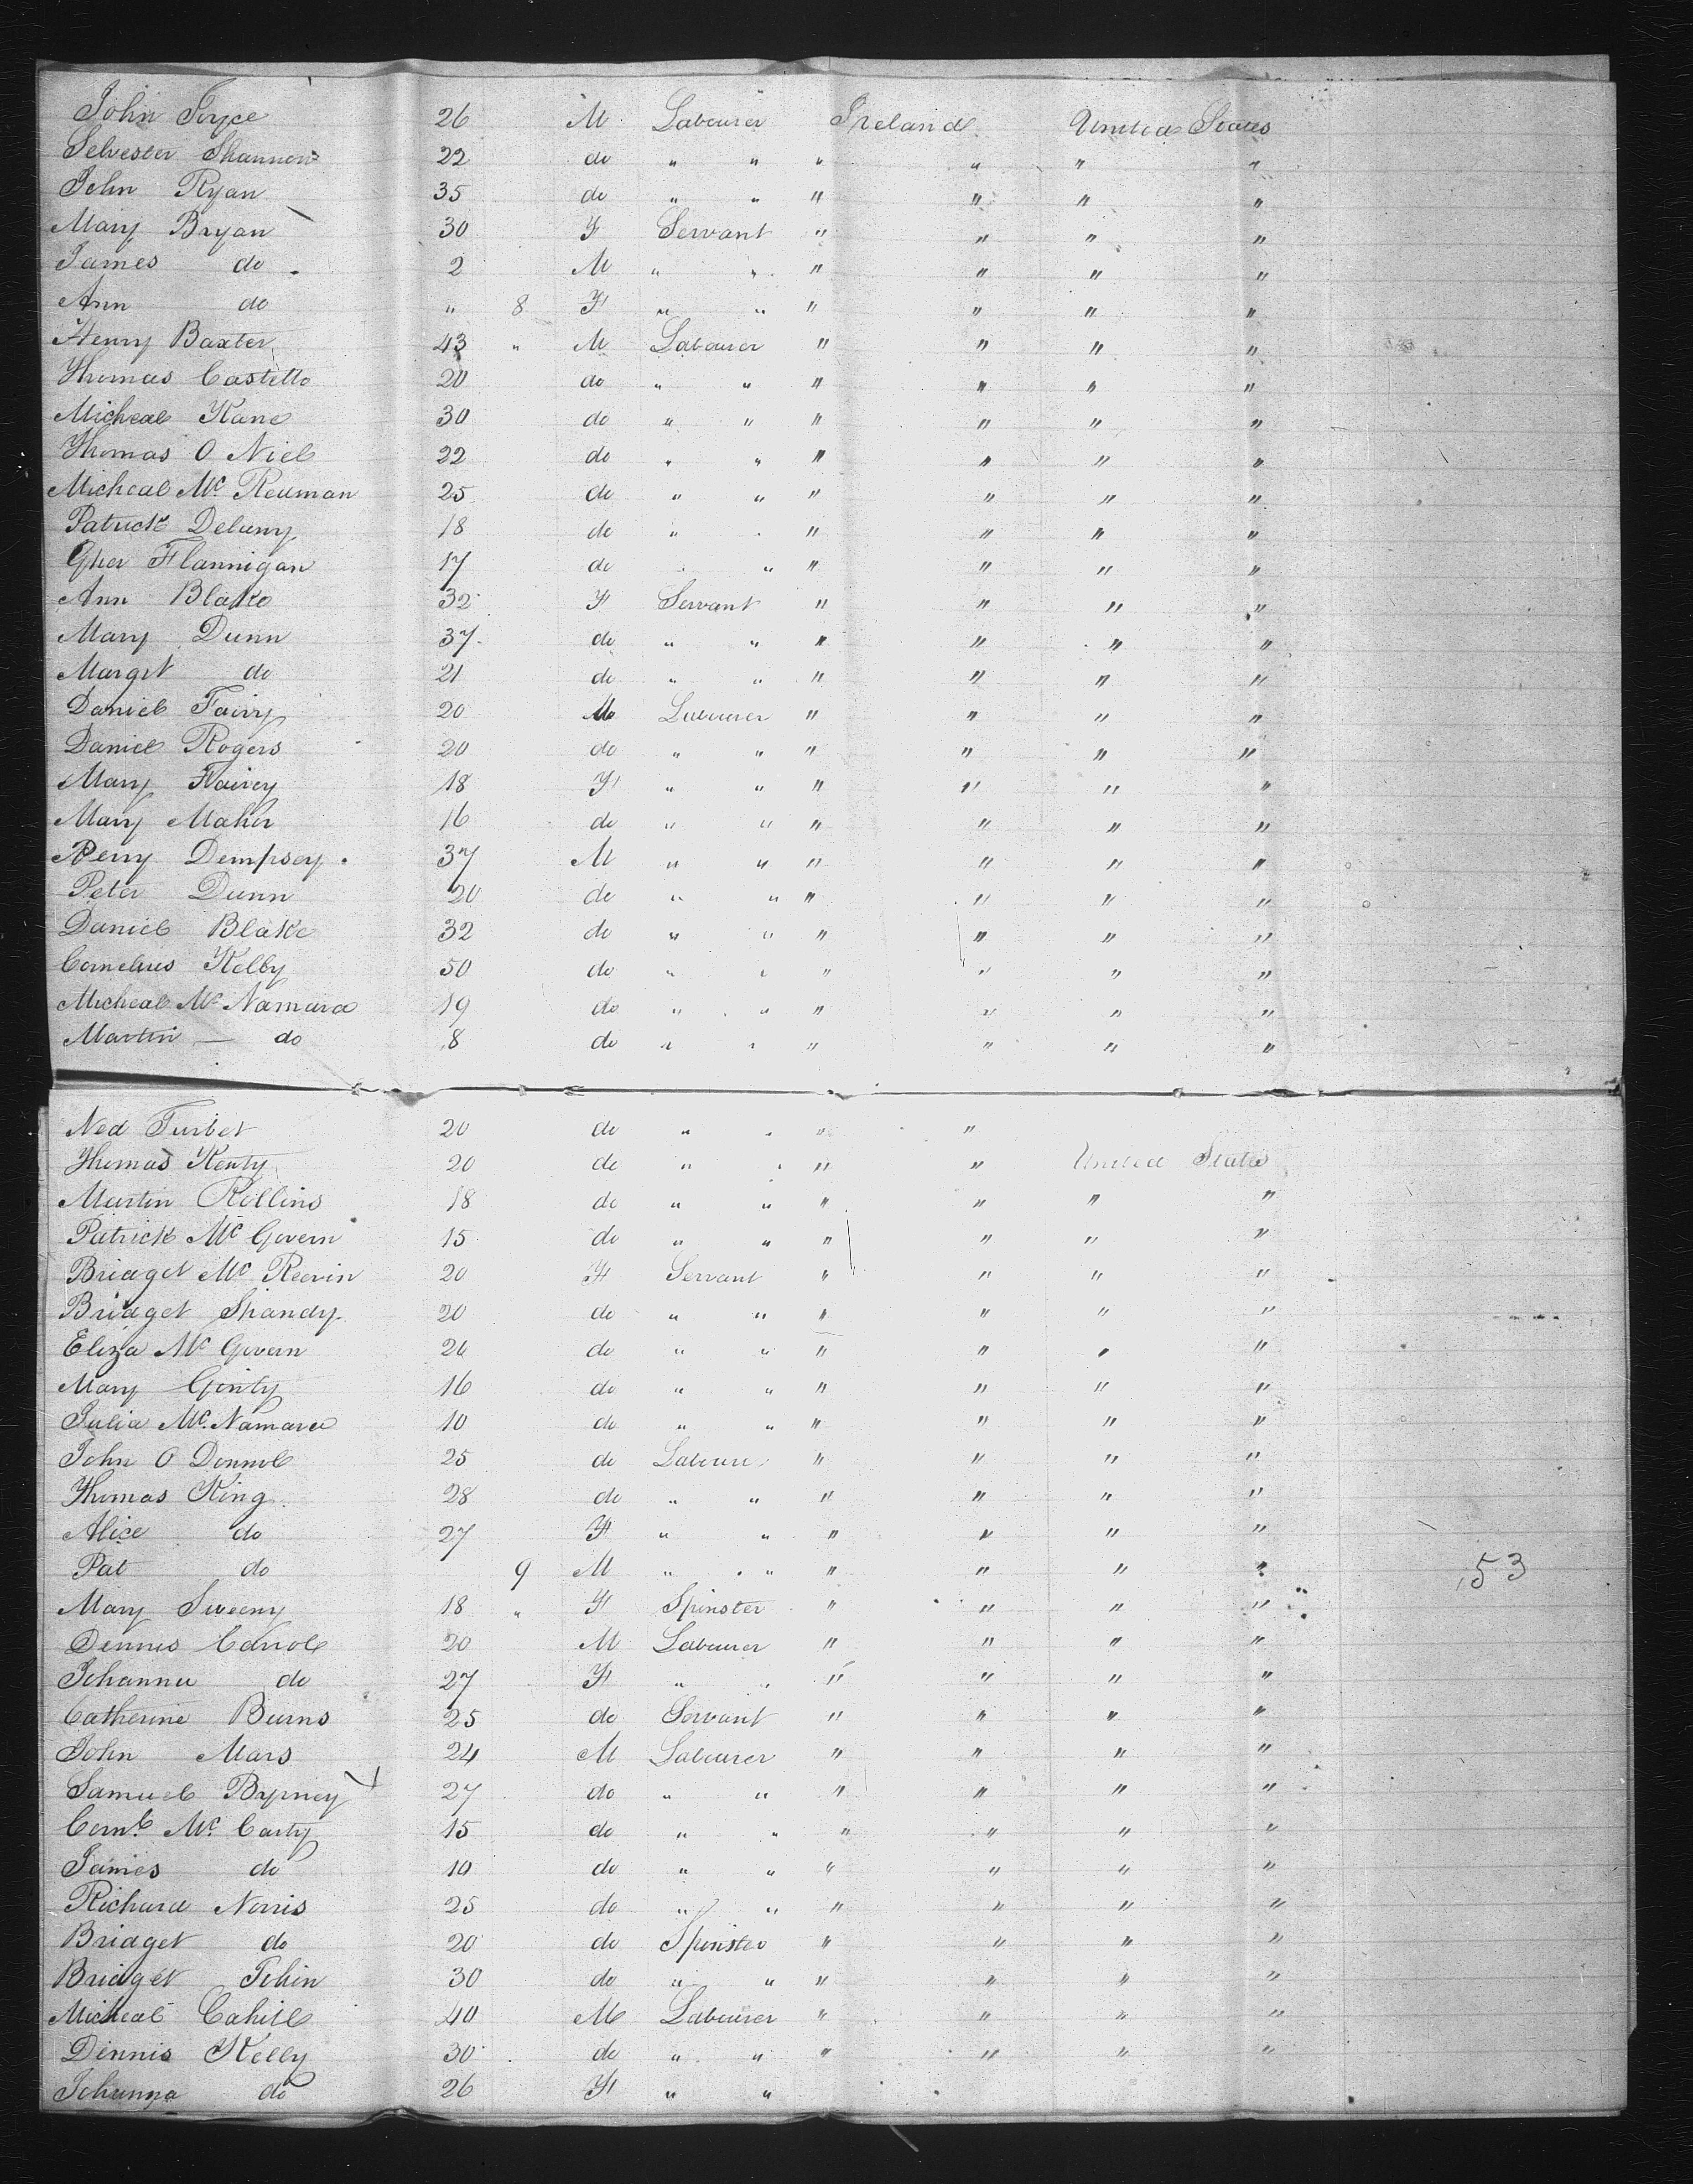 John Joyce 26 M Labourer Ireland United States
Selvester Shannon 22 do " " " " " "
John Ryan 35 do " " " " " "
Mary Bryan 30 F Servant " " " "
James do 2 M " " " " " "
Ann do " 8 F " " " " " "
Henry Baxter 43 " M Labourer " " " "
Thomas Costello 20 do " " " " " "
Micheal Kane 30 do " " " " " "
Thomas O Niel 22 do " " " " " "
Micheal Mc 25 do " " " " " "
Patrick Deluny 18 do " " " " " "
Flannigan 17 do " " " " " "
Ann Blake 32 F Servant " " " "
Mary Dunn 37 do " " " " " "
Margrt do 21 do " " " " " "
Daniel Fairy 20 M Labourer " " " "
Daniel Rogers 20 do " " " " " "
Mary Fairey 18 F " " " " " "
Mary Maher 16 do " " " " " "
Dempsey 37 M " " " " " "
Peter Dunn 20 do " " " " " "
Daniel Blake 32 do " " " " " "
Cornelius Kelby 50 do " " " " " "
Micheal Mc Namara 19 do " " " " " "
Martin — do 8 do " " " " " "
Ned Turbet 20 do " " " "
Thomas Kenty 20 do " " " " United States
Martin Rollins 18 do " " " " " "
Patrick Mc Govern 15 do " " " " " "
Bridget Mc Reevin 20 F Servant " " " "
Bridget 20 do " " " " " "
Eliza Mc Govern 20 do " " " " " "
Mary Ginty 16 do " " " " " "
Julia Mc Namara 10 do " " " " " "
John O Donnol 25 do Labourer " " " "
Thomas King 28 do " " " " " "
Alice do 27 F " " " " " "
Pat do 9 M " " " " " " 53
Mary Sweeny 18 " F Spinster " " " "
Dennis Carrol 20 M Labourer " " " "
Johanna do 27 F " " " " " "
Catherine Burns 25 do Servant " " " "
John Mars 24 M Labourer " " " "
Samuel Byrney 27 do " " " " " "
Cornl Mc Carty 15 do " " " " " "
James do 10 do " " " " " "
Richard Norris 25 do " " " " " "
Bridget do 20 do Spinster " " " "
Bridget 30 do " " " " " "
Micheal Cahill 40 M Labourer " " " "
Dennis Kelly 30 do " " " " " "
Johanna do 26 F " "